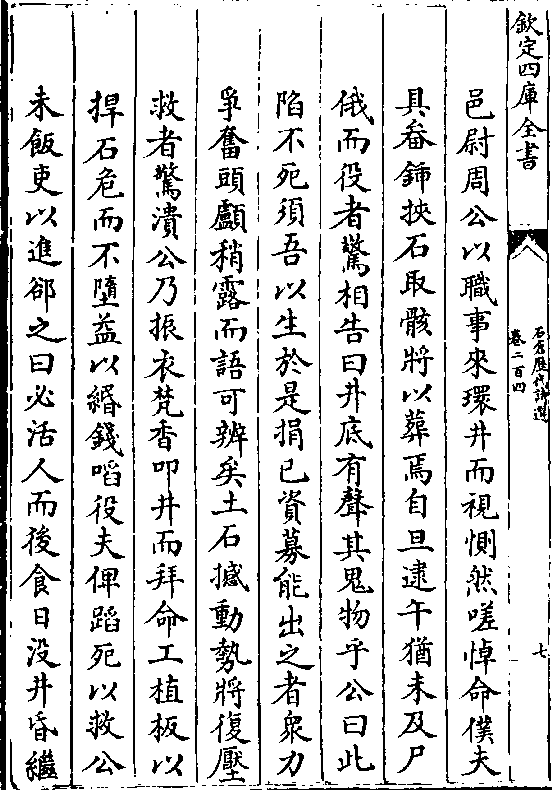 欽定四庫全書
石倉歷代詩選
卷二百四
七
邑尉周公以職事來環井而視惻然嗟悼命僕夫
具畚鍤挾石取骸將以葬焉自旦逮午猶未及尸
俄而役者驚相告曰井底有聲其鬼物乎公曰此
陷不死須吾以生於是捐已資募能出之者衆力
爭奮頭顱稍露而語可辨矣土石撼動勢將復壓
救者驚潰公乃振衣焚香叩井而拜命工植板以
捍石危而不墮益以緡錢啗役夫俾蹈死以救公
未飯吏以進卻之曰必活人而後食日没井昏繼